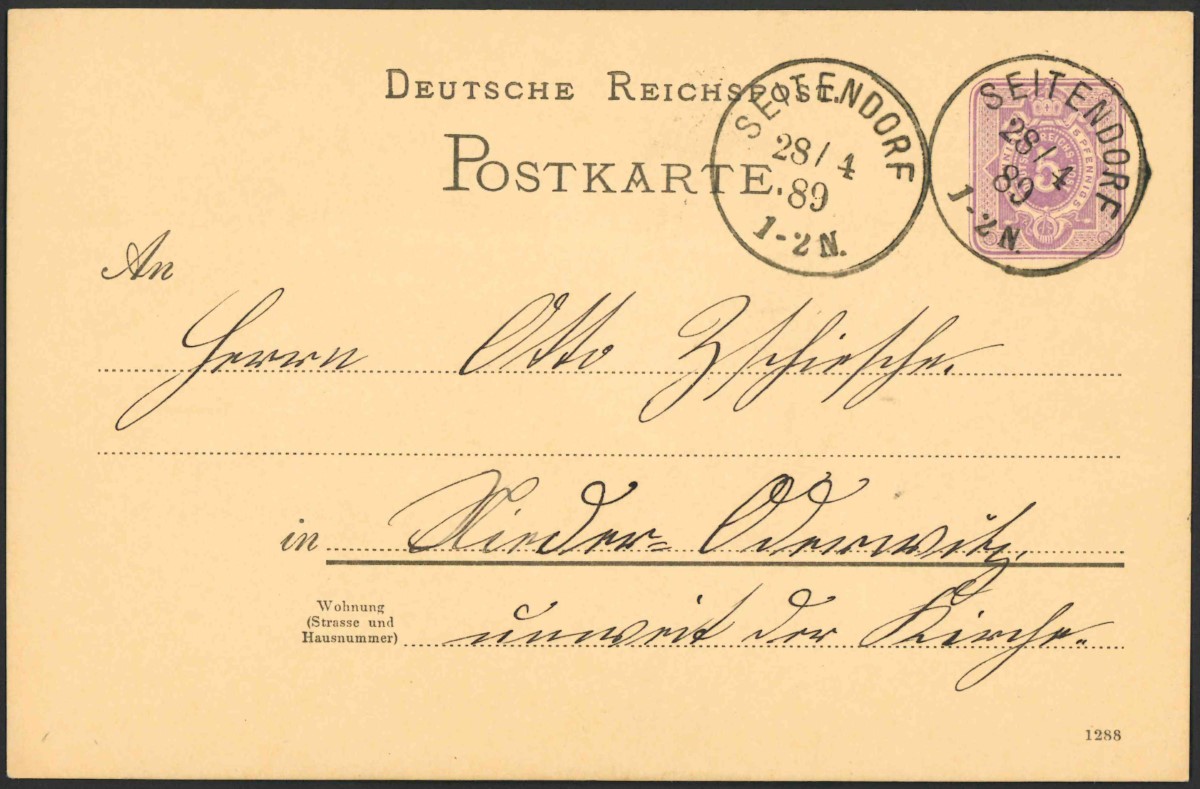 DEUTSCHE REICHSPOST.
POSTKARTE.
SEITENDORF
28/4
89
1-2N.
SEITENDORF
28/4
89
1-2N.
5 PFENNIG 5
5
An
Herrn Otto Zschiesche.
in Nieder-Oderwitz,
Wohnung
(Strasse und
Hausnummer)
unweit der Kirche.
1288